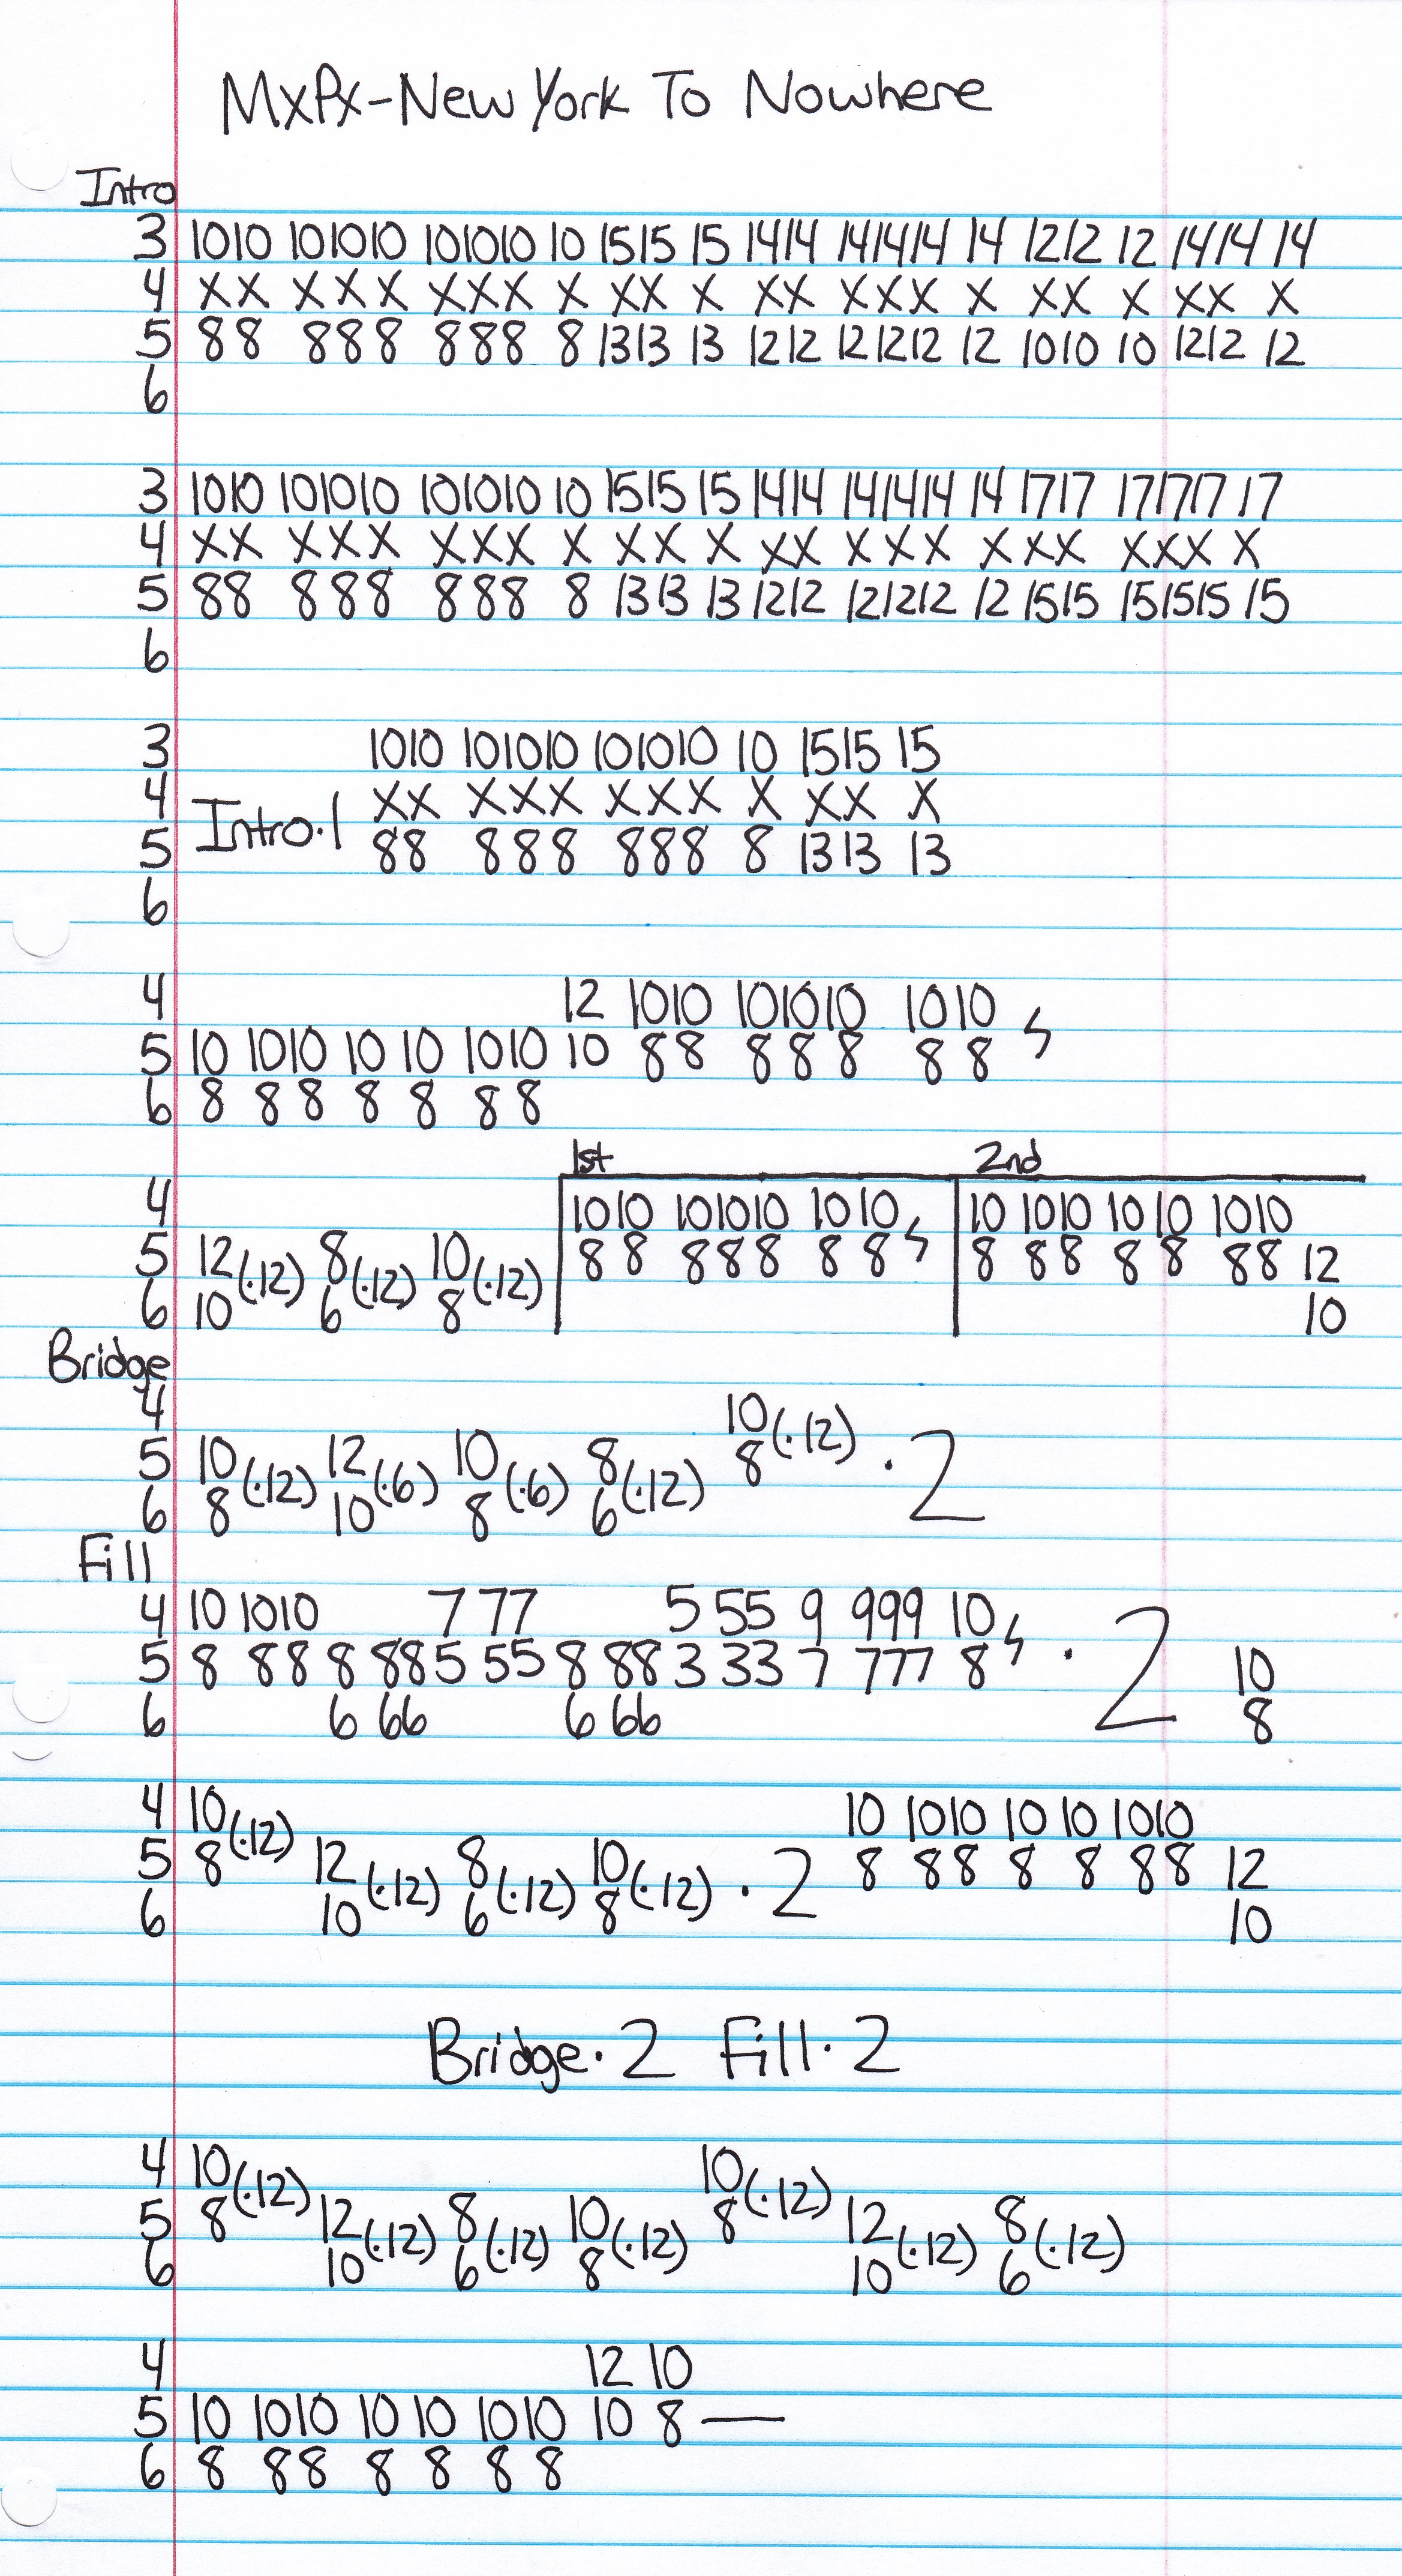 MxPx-New York To Nowhere
Intro
3 1010 101010 101010 10 1515 15 1414 141414 14 1212 12 1414 14
4 xx xxx xxx x xx x xx xxx x xx x xx x
5 88 888 888 8 1313 13 1212 121212 12 1010 10 1212 12
6
3 1010 101010 101010 10 1515 15 1414 141414 14 1717 171717 17
4 xx xxx xxx x xx x xx xxx x xx xxx x
5 88 888 888 8 1313 13 1212 121212 12 1515 151515 15
6
3 1010 101010 101010 10 1515 15
4 xx xxx xxx x xx x
Intro·1
5 88 888 888 8 1313 13
6
4 12 1010 101010 1010
5 10 1010 10 10 1010 10 88 888 88
6 8 88 8 8 88
1st 2nd
4 1010 101010 1010 10 1010 10 10 1010
5 12(·12) 8(·12) 10(·12) 88 888 88 8 88 8 8 88 12
6 10 6 8 10
Bridge
4 10(·12)
5 10(·12) 12(·6) 10(·6) 8(·12) 8 ·2
6 8 10 8 6
Fill
4 10 1010 7 77 5 55 9 999 10
5 8 88 8 88 5 55 8 88 3 33 7 777 8 ·2 10
6 6 66 6 66 8
4 10(·12) 10 1010 10 10 1010
5 8 12(·12) 8(·12) 10(·12) ·2 8 88 8 8 88 12
6 10 6 8 10
Bridge·2 Fill·2
4 10(·12) 10(·12)
5 8 12(·12) 8(·12) 10(·12) 8 12(·12) 8(·12)
6 10 6 8 10 6
4 12 10
5 10 1010 10 10 1010 10 8—
6 8 88 8 8 88